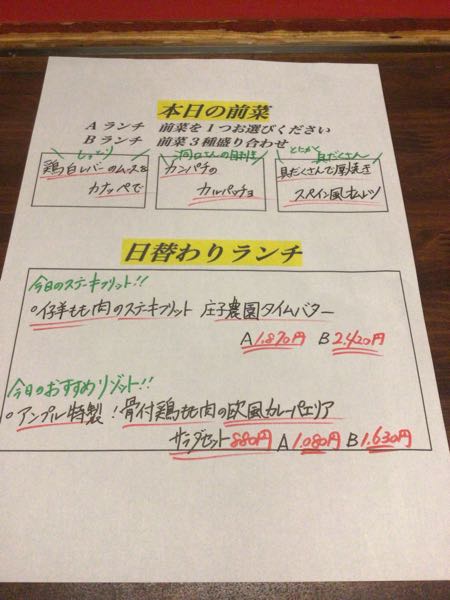 本日の前菜
Aランチ 前菜を1つお選びください
Bランチ 前菜3種盛り合わせ
鶏白レバーのムースを
カナッペで
カンパチの
カルパッチョ
とにかく 具だくさん
具だくさんで厚焼き
スペイン風オムレツ
日替わりランチ
今日のステキフリット!!
○仔羊もも肉のステキフリット 庄子農園タイムバター
A1.870円 B2.420円
今日のおすすめリゾット!!
○アンプル特製!骨付鶏もも肉の欧風カレーパエリア
サラダセット880円 A1.080円 B1.630円